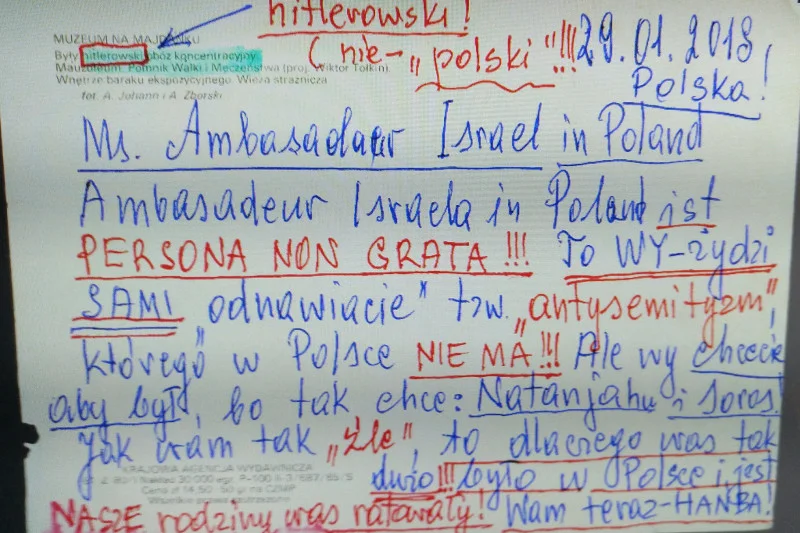 hitlerowski!
MUZEUM NA MAJDANKU
(nie-„polski"!!! 29.01.2018,
Były hitlerowski obóz koncentracyjny.
Mauzoleum. Pomnik Walki i Męczeństwa (proj. Wiktor Tołkin).
Wnętrze baraku ekspozycyjnego. Wieża strażnicza
fot. A. Johann i A. Zborski
Polska!
Ms. Ambasadaur Israel in Poland
Ambasadeur Israela in Poland ist
PERSONA NON GRATA!!! To WY-żydzi
SAMI „odnawiacie" tzw. „antysemityzm",
którego w Polsce NIE MA!!! Ale wy chcecie
aby był, bo tak chce: Natanjahu i Soros!
Jak wam tak „źle", to dlaczego was tak
KRAJOWA AGENCJA WYDAWNICZA
dużo!!! było w Polsce i jest
Nakład 30 000 egz.
Cena zł
Wszelkie prawa zastrzeżone
NASZE rodziny was ratowały! Wam teraz-HAŃBA!